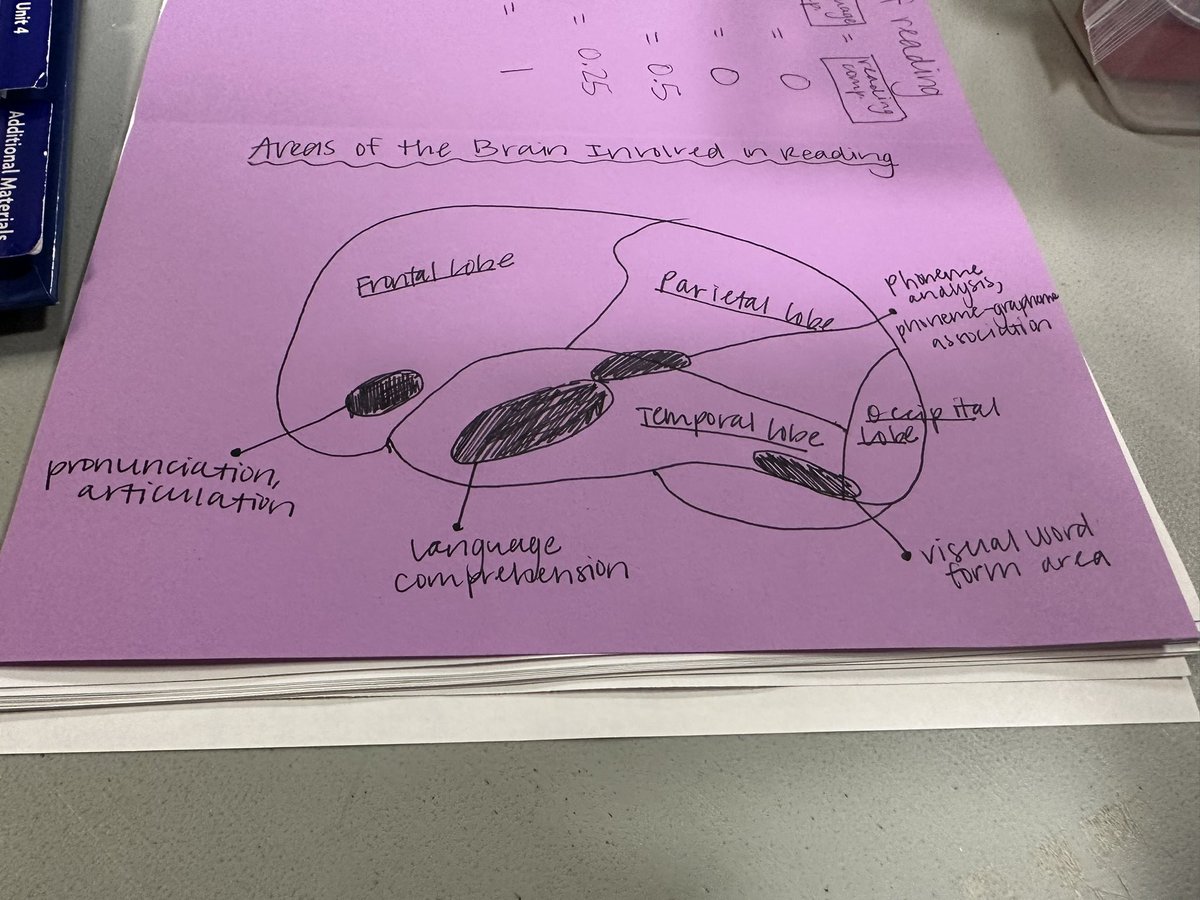 Unit 4
Additional Materials
f reading
reading
comp
=
= 0
= 0
= 0.5
= 0.25
= 1
Areas of the Brain Involved in Reading
Frontal Lobe
Parietal Lobe
phoneme
analysis,
phoneme-grapheme
association
Temporal Lobe
Occipital
Lobe
pronunciation,
articulation
language
comprehension
visual word
form area